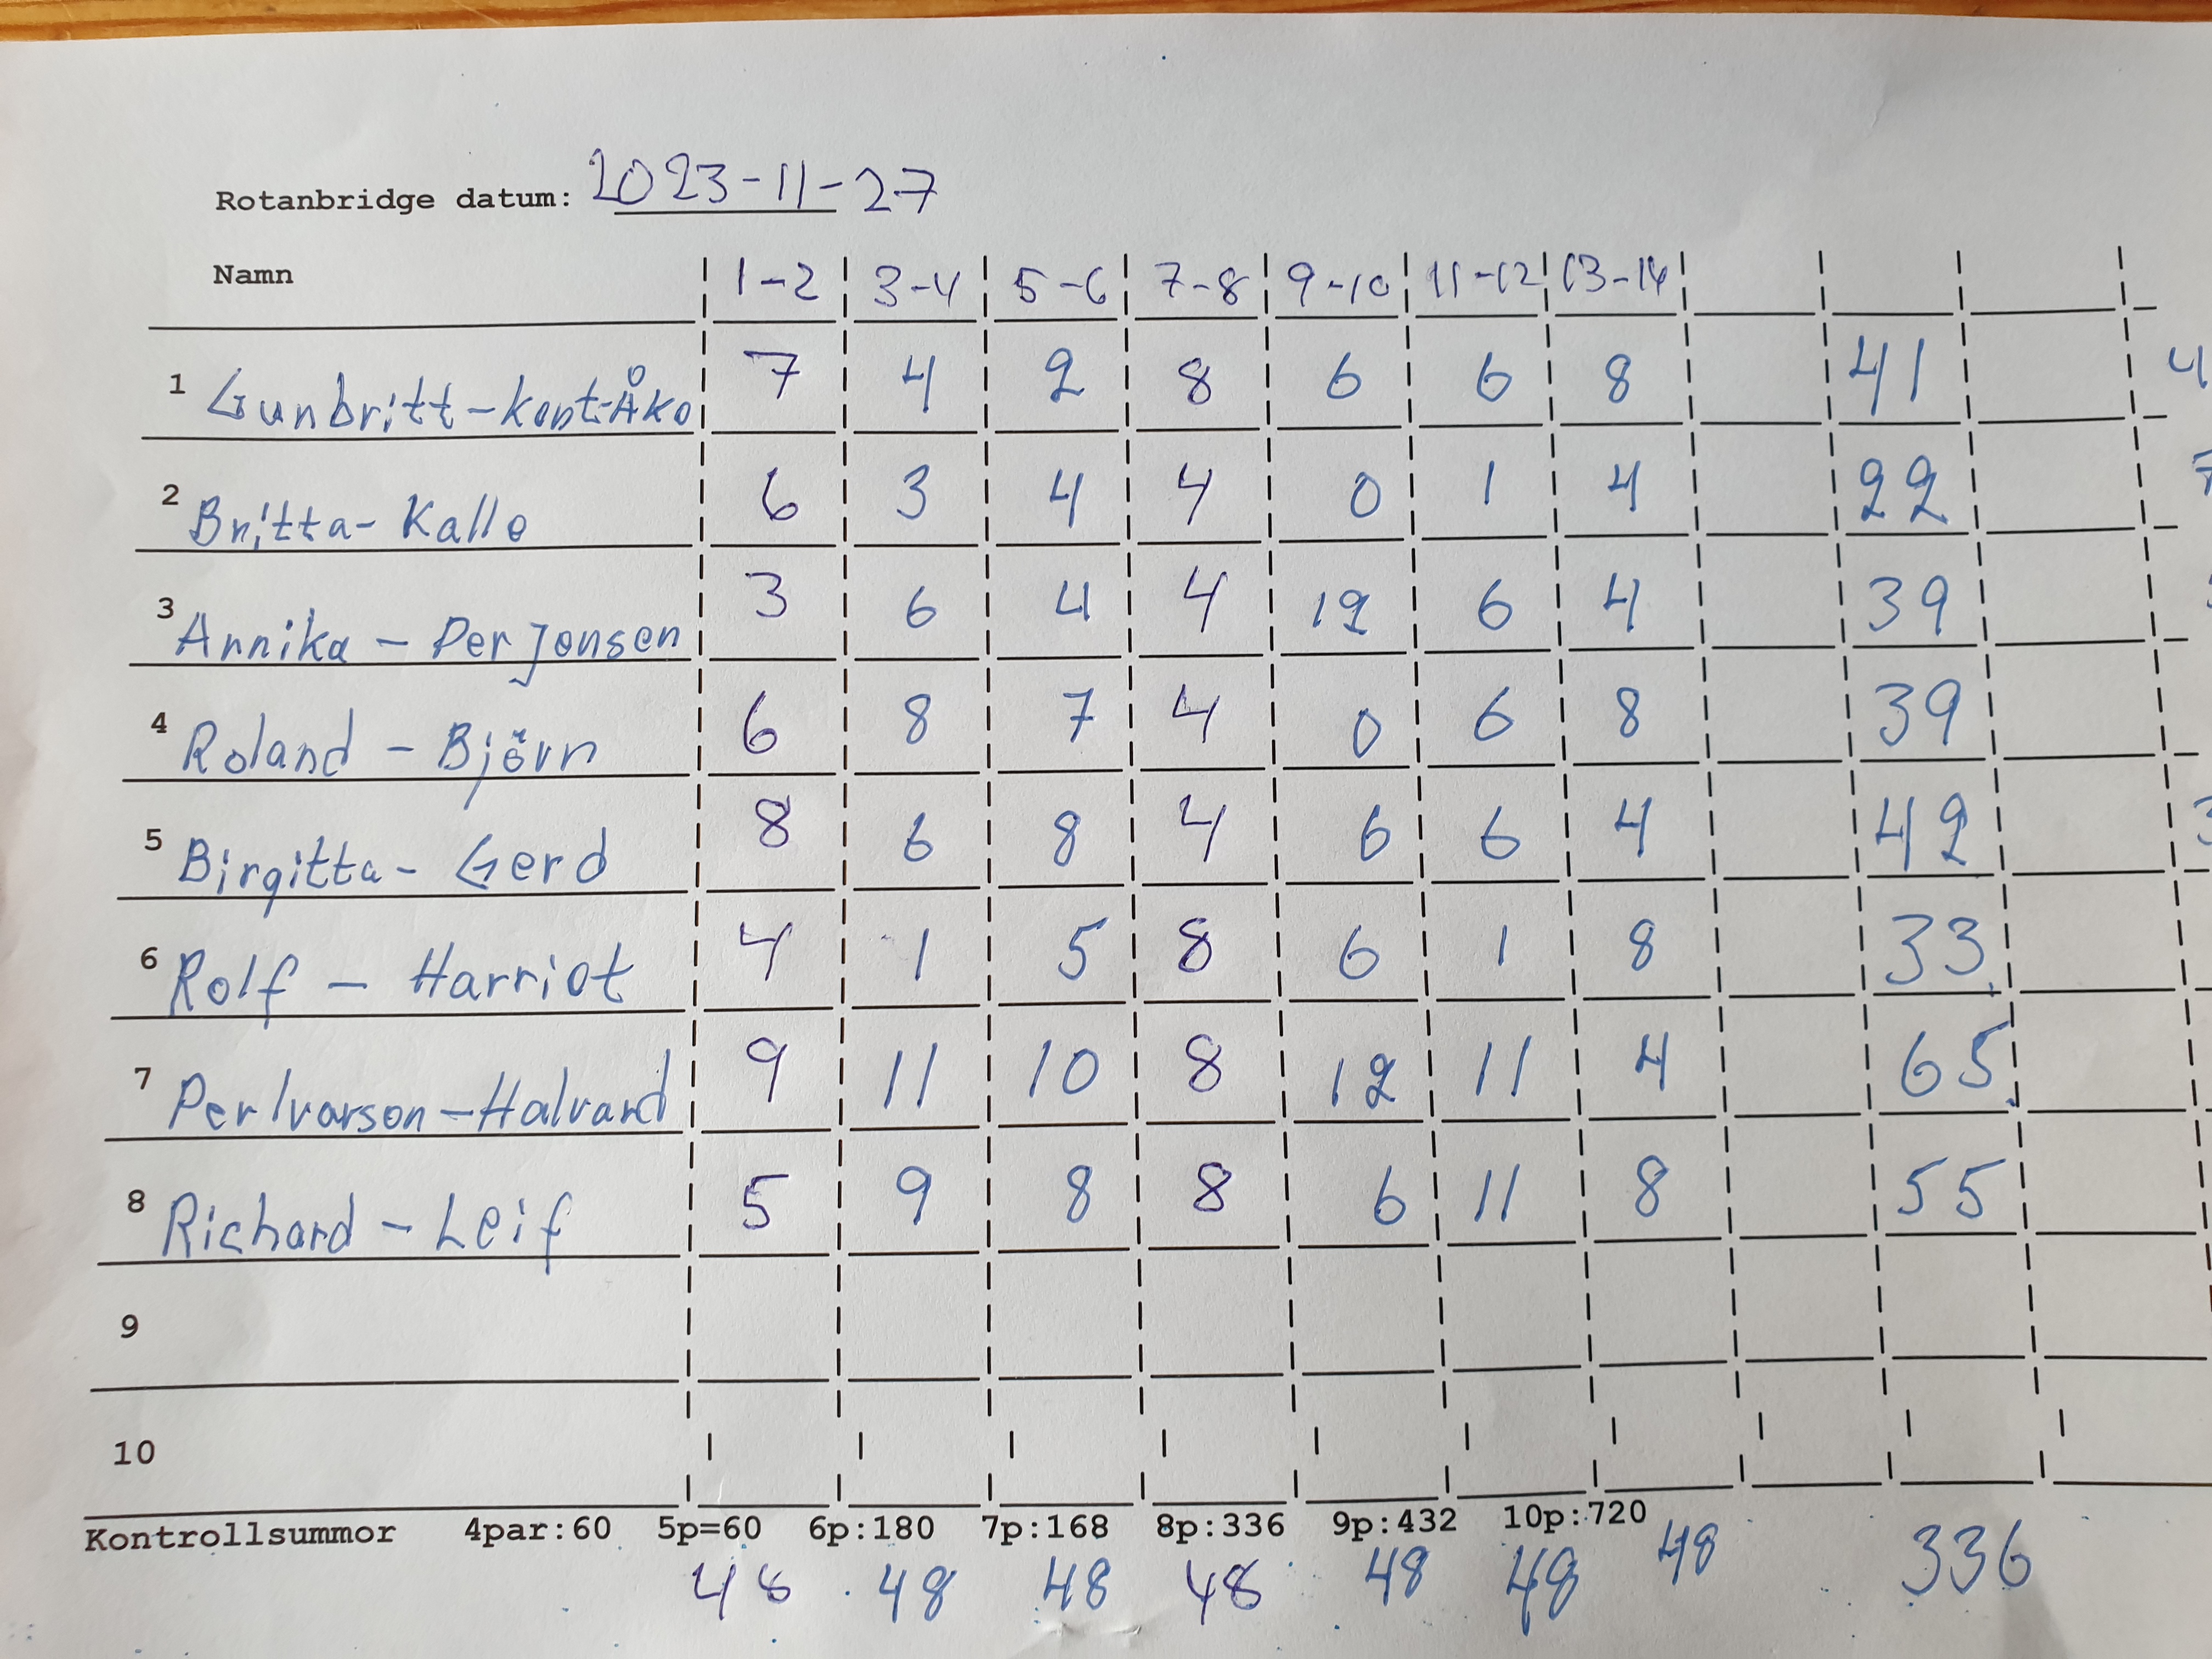 Rotanbridge datum: 2023-11-27
Namn 1-2 3-4 5-6 7-8 9-10 11-12 13-14
1 Gunbritt-Kent-Åke 7 4 2 8 6 6 8 41
2 Britta-Kalle 6 3 4 4 0 1 4 22
3 Annika - Per Jonsen 3 6 4 4 12 6 4 39
4 Roland - Björn 6 8 7 4 0 6 8 39
5 Birgitta - Gerd 8 6 8 4 6 6 4 42
6 Rolf - Harriet 4 1 5 8 6 1 8 33
7 Per Ivarson - Halvard 9 11 10 8 12 11 4 65
8 Richard - Leif 5 9 8 8 6 11 8 55
9
10
Kontrollsummor 4par:60 5p=60 6p:180 7p:168 8p:336 9p:432 10p:720
48 48 48 48 48 48 48 336